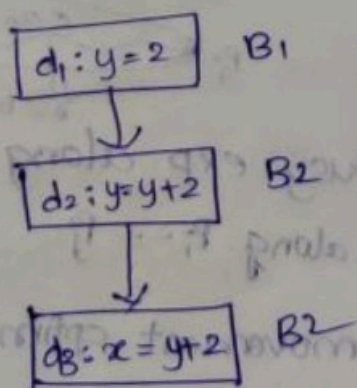 d1 : y = 2 B1
d2 : y = y+2 B2
d3 : x = y+2 B2